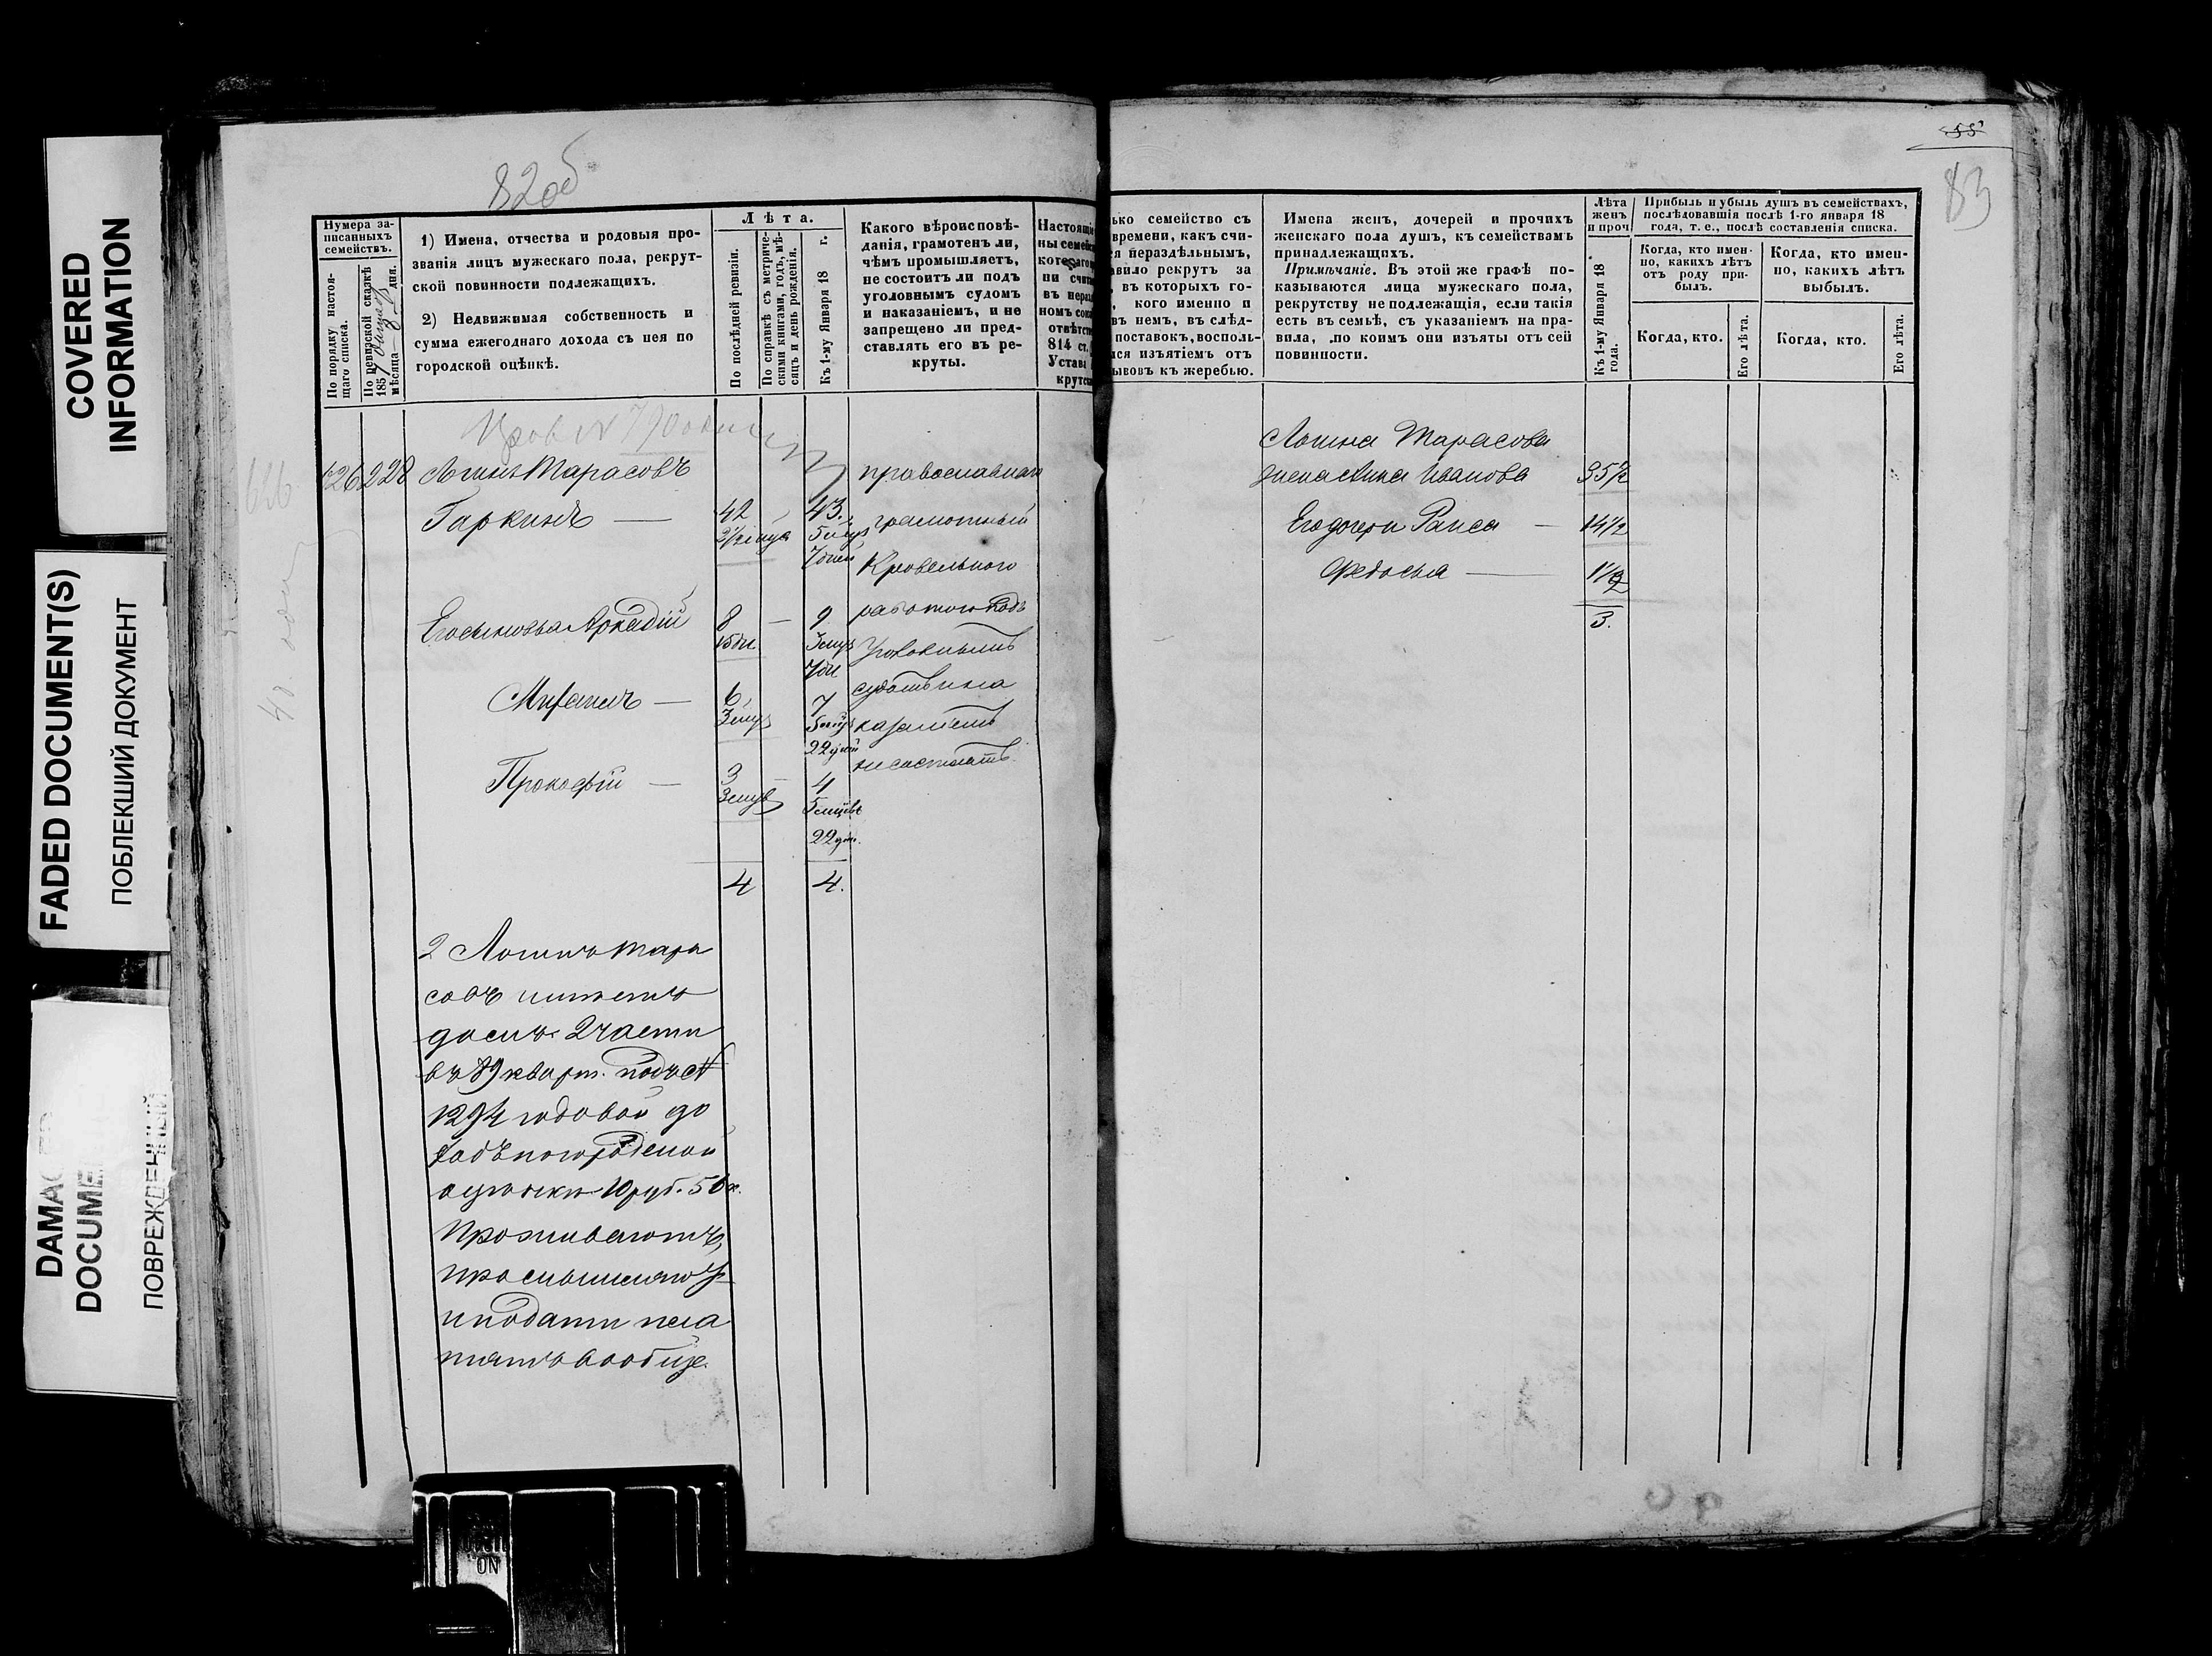 COVERED
INFORMATION
FADED DOCUMENT(S)
ПОБЛЕКШИЙ ДОКУМЕНТ
ПОВРЕЖДЕННЫЙ
82 об
Нумера за-
писанныхъ
семействъ.
По порядку настоя-
щаго списка.
По ревизской сказкѣ
185
мѣсяца 8 дня.
1) Имена, отчества и родовыя про-
званія лицъ мужескаго пола, рекрут-
ской повинности подлежащихъ.
2) Недвижимая собственность и
сумма ежегоднаго дохода съ нея по
городской оцѣнкѣ.
Лѣта.
По послѣдней ревизіи.
По справкѣ съ метриче-
скими книгами, годъ, мѣ-
сяцъ и день рожденія.
Къ 1-му Января 18 г.
Какого вѣроисповѣ-
данія, грамотенъ ли,
чѣмъ промышляетъ,
не состоитъ ли подъ
уголовнымъ судомъ
и наказаніемъ, и не
запрещено ли пред-
ставлять его въ ре-
круты.
626 228 Логинъ Тарасовъ
Гаркинъ — 42 43.
5 7 дней
Его сыновья Аркадій 8 — 9
15 дн. 7 дн
Михаилъ — 6 7
22 дней
Прокофій — 3 — 4
22 дн.
4 4.
православнаго
грамотный
Кровельного
работою подъ
Уголовнымъ
судомъ и на
казаніемъ
не состоятъ.
2 Логинъ Тара
совъ имѣетъ
домъ 2 части
въ 89 кварт. подъ №
1294 годовой до
ходъ по городской
оцѣнкѣ 10 руб. 50 к.
Проживаютъ,
промышляютъ
и подати пла
тятъ вообще.
83
ько семейство съ
времени, какъ счи-
я нераздѣльнымъ,
авило рекрутъ за
въ которыхъ го-
, кого именно п
въ немъ, въ слѣд-
поставокъ, восполь-
лся изъятіемъ отъ
ывовъ къ жеребью.
Имена женъ, дочерей и прочихъ
женскаго пола душъ, къ семействамъ
принадлежащихъ.
Примѣчаніе. Въ этой же графѣ по-
казываются лица мужескаго пола,
рекрутству не подлежащія, если такія
есть въ семьѣ, съ указаніемъ на пра-
вила, по коимъ они изъяты отъ сей
повинности.
Лѣта
женъ
и проч.
Къ 1-му Января 18
года.
Прибыль и убыль душъ въ семействахъ,
послѣдовавшія послѣ 1-го января 18
года, т. е., послѣ составленія списка.
Когда, кто имен-
но, какихъ лѣтъ
отъ роду при-
былъ.
Когда, кто имен-
но, какихъ лѣтъ
выбылъ.
Когда, кто.
Его лѣта.
Когда, кто.
Его лѣта.
Логина Тарасова
жена Анна Иванова 35½
Его дочери Раиса — 14½
Федосья — 1½
3.